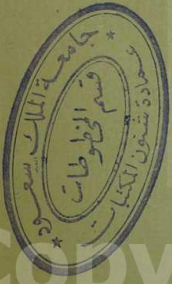 جامعة الملك سعود
قسم المخطوطات
عمادة شئون المكتبات
Copy